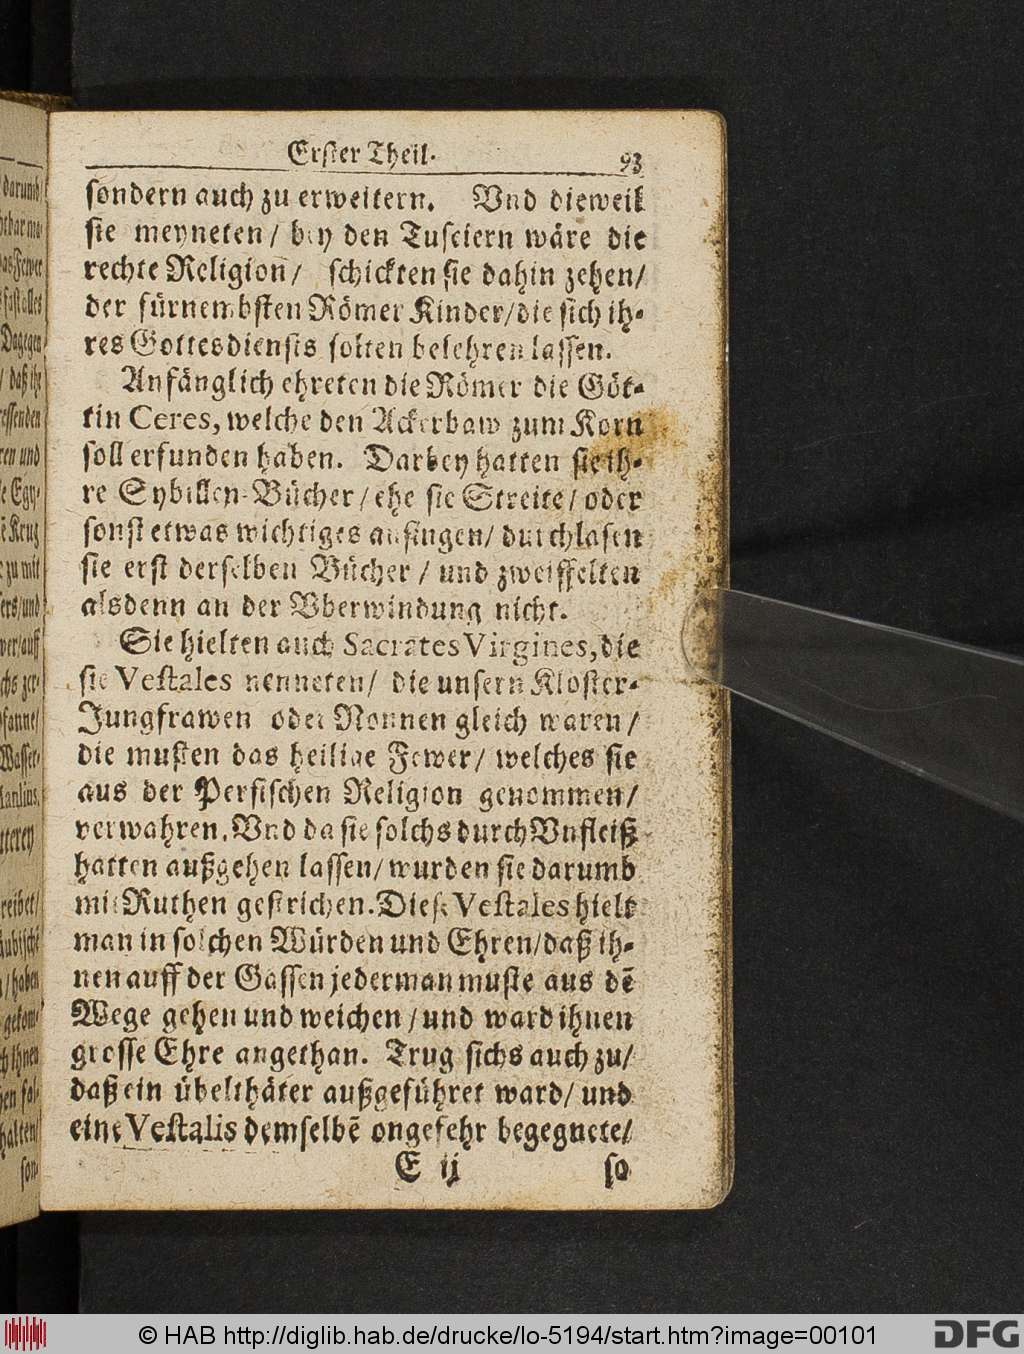 Erster Theil. 93
sondern auch zu erweitern. Vnd dieweil
sie meyneten / bey den Tusciern wäre die
rechte Religion / schickten sie dahin zehen /
der fürnembsten Römer Kinder / die sich ih-
res Gottesdiensts solten belehren lassen.
Anfänglich ehreten die Römer die Göt-
tin Ceres, welche den Ackerbaw zum Korn
soll erfunden haben. Darbey hatten sie ih-
re Sybillen-Bücher / ehe sie Streite / oder
sonst etwas wichtiges anfingen / durchlasen
sie erst derselben Bücher / und zweiffelten
alsdenn an der Vberwindung nicht.
Sie hielten auch Sacrates Virgines, die
sie Vestales nenneten / die unsern Kloster-
Jungfrawen oder Nonnen gleich waren /
die musten das heilige Fewer / welches sie
aus der Persischen Religion genommen /
verwahren. Vnd da sie solchs durch Vnfleiß
hatten außgehen lassen / wurden sie darumb
mit Ruthen gestrichen. Diese Vestales hielt
man in solchen Würden und Ehren / daß ih-
nen auff der Gassen jederman muste aus dē
Wege gehen und weichen / und ward ihnen
grosse Ehre angethan. Trug sichs auch zu /
daß ein übelthäter außgeführet ward / und
eine Vestalis demselbē ongefehr begegnete /
E ij so
darumb /
Fewer
Dagegen
/ daß ihr
essenden
ren und
Egy-
Krug
zu mit
und
auff
Wasser-
Manlius,
reibet /
/ haben
ihnen
halten /
son-
© HAB http://diglib.hab.de/drucke/lo-5194/start.htm?image=00101
DFG